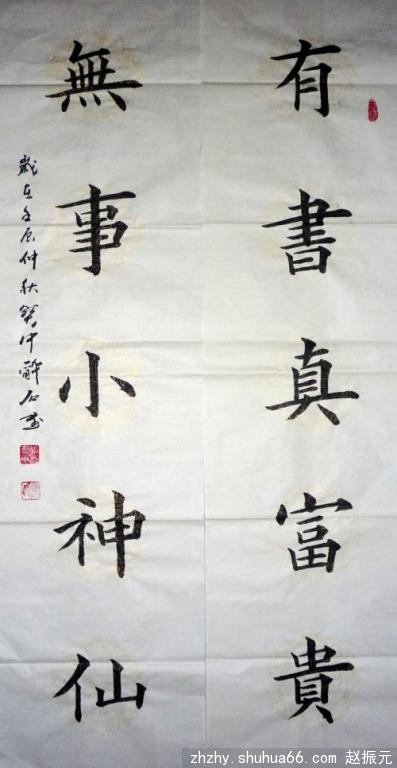 有書真富貴
無事小神仙
歲在壬辰仲秋
zhzhy.shuhua66.com 赵振元